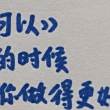 可以》
的时候
你做得更